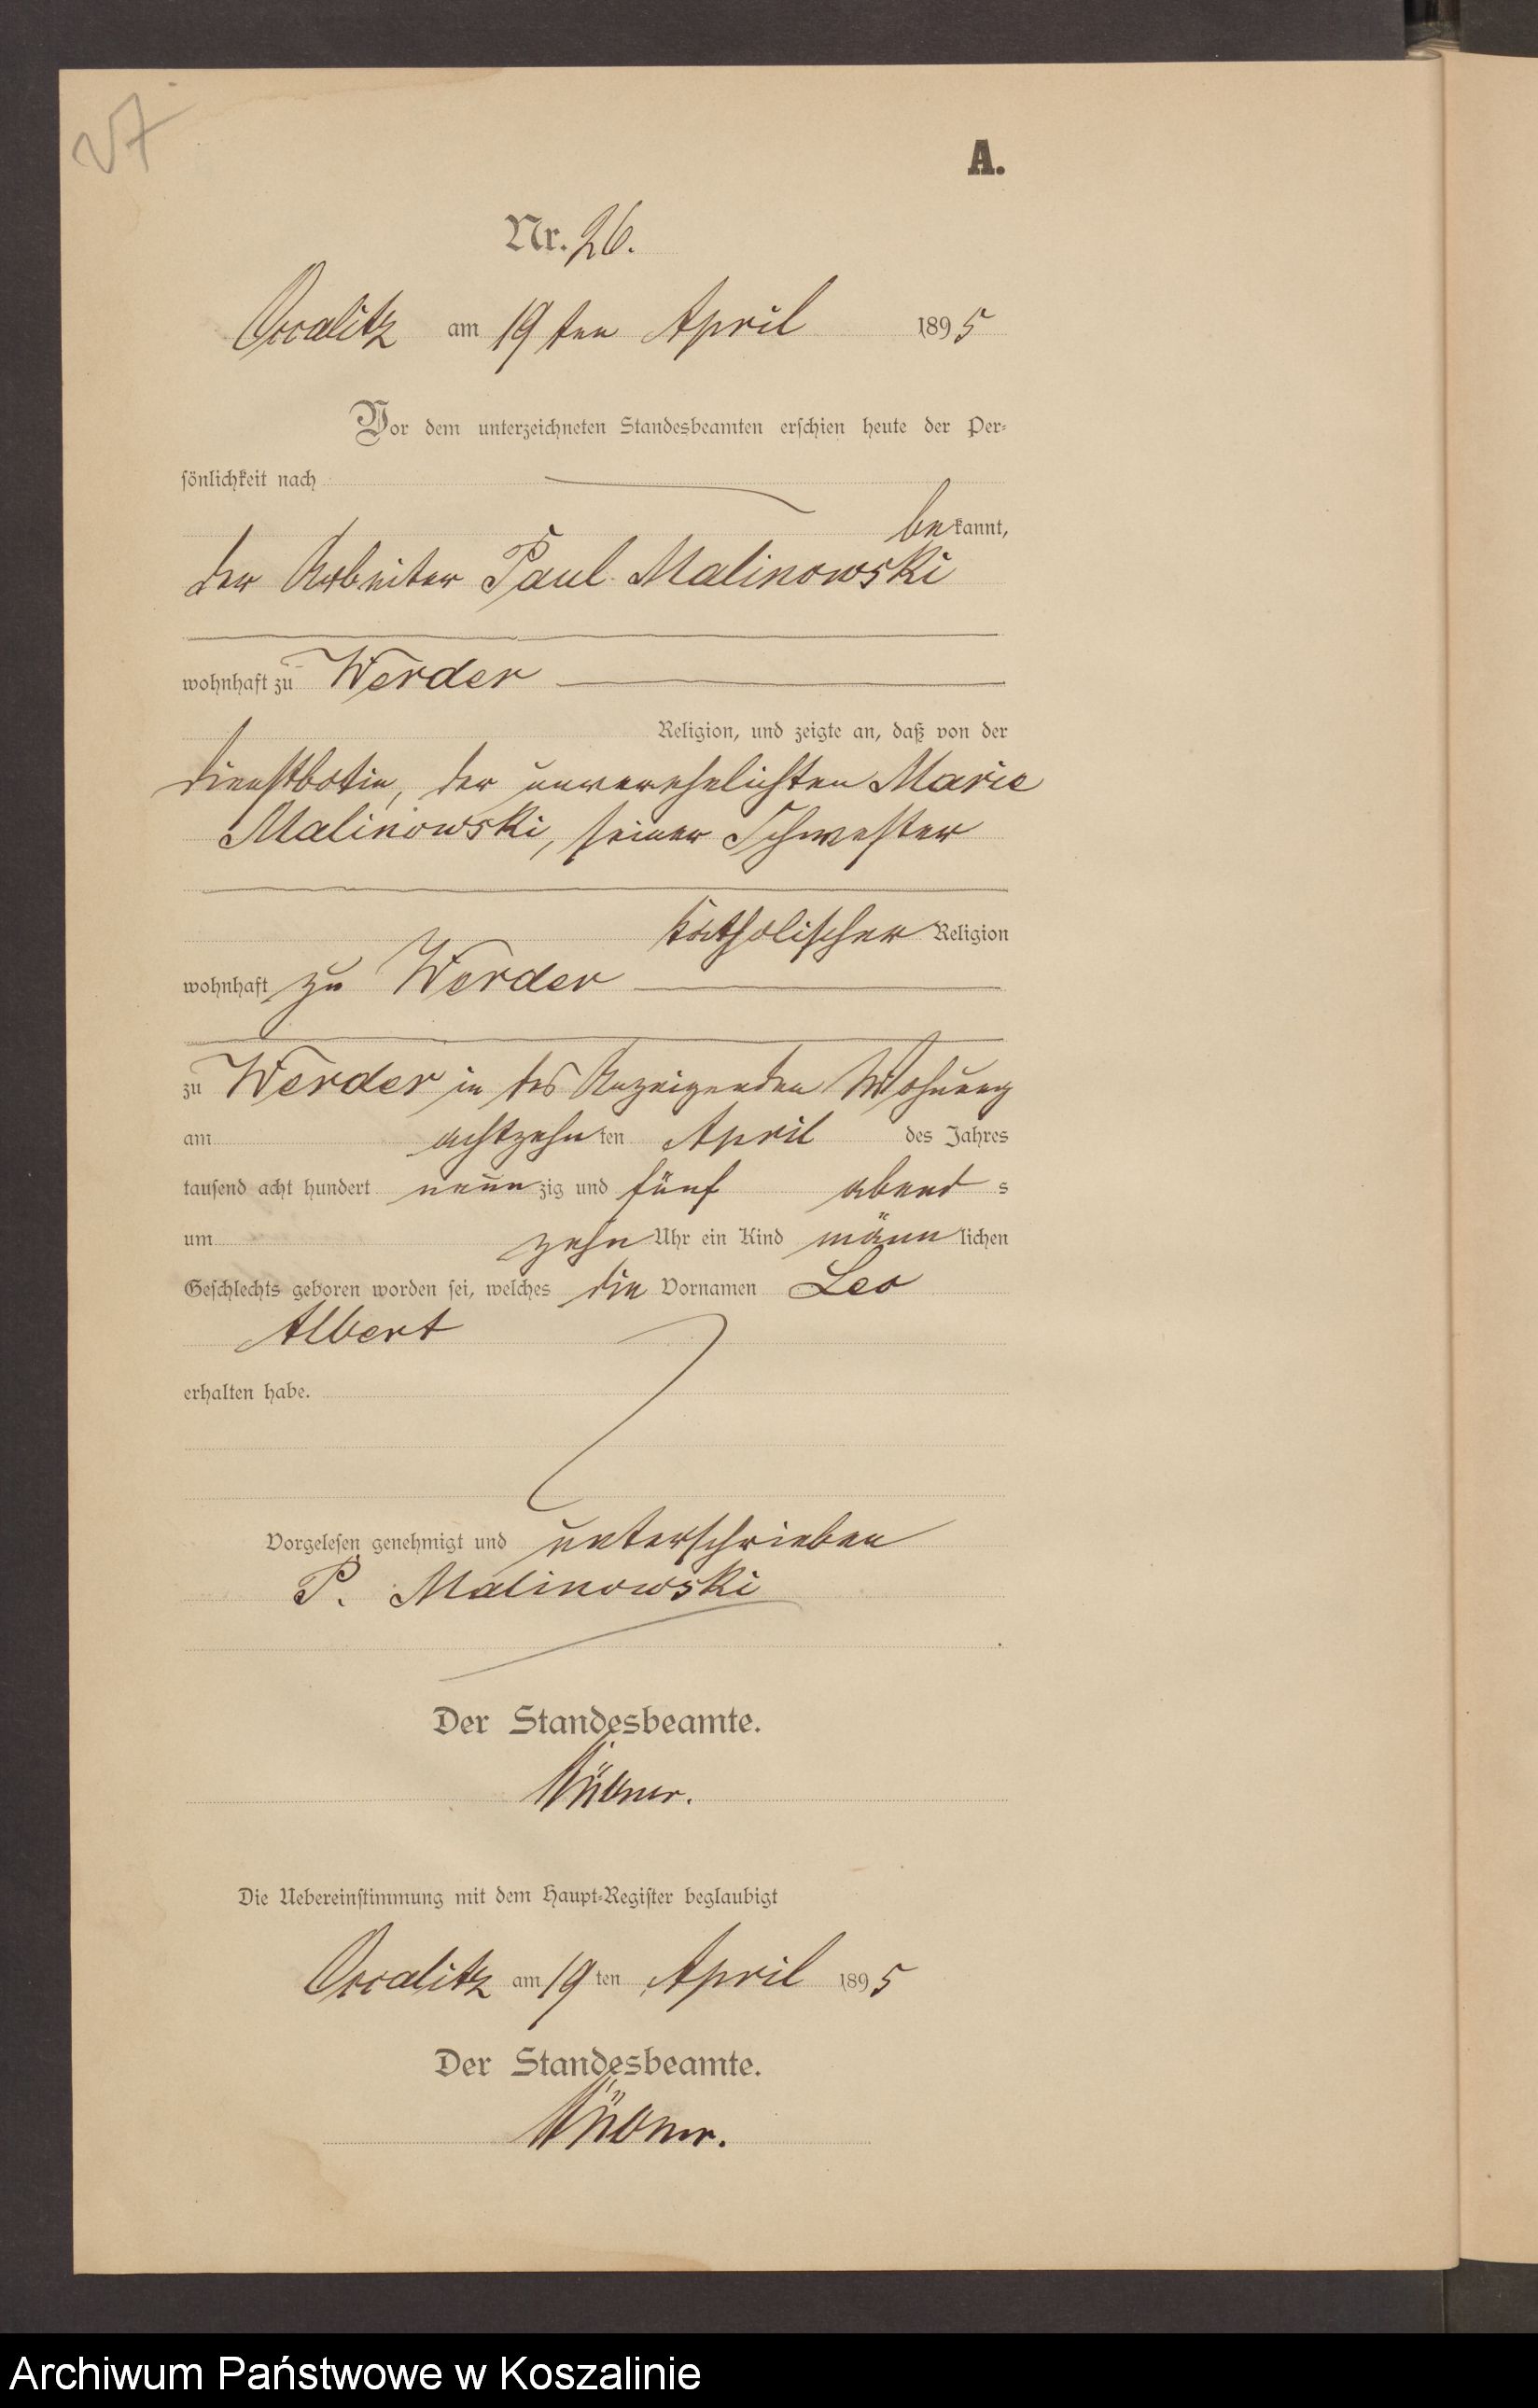 27
A.
Nr. 26.
Occalitz am 19ten April 1895
Vor dem unterzeichneten Standesbeamten erschien heute der Per-
sönlichkeit nach
bekannt,
der Arbeiter Paul Malinowski
wohnhaft zu Werder
Religion, und zeigte an, daß von der
Dienstbotin, der unverehelichten Marie
Malinowski, seiner Schwester
katholischer Religion
wohnhaft zu Werder
zu Werder in des Anzeigenden Wohnung
am achtzehnten April des Jahres
tausend acht hundert neunzig und fünf abends
um zehn Uhr ein Kind männlichen
Geschlechts geboren worden sei, welches die Vornamen Leo
Albert
erhalten habe.
Vorgelesen genehmigt und unterschrieben
P. Malinowski
Der Standesbeamte.
Die Uebereinstimmung mit dem Haupt-Register beglaubigt
Occalitz am 19ten April 1895
Der Standesbeamte.
Archiwum Państwowe w Koszalinie